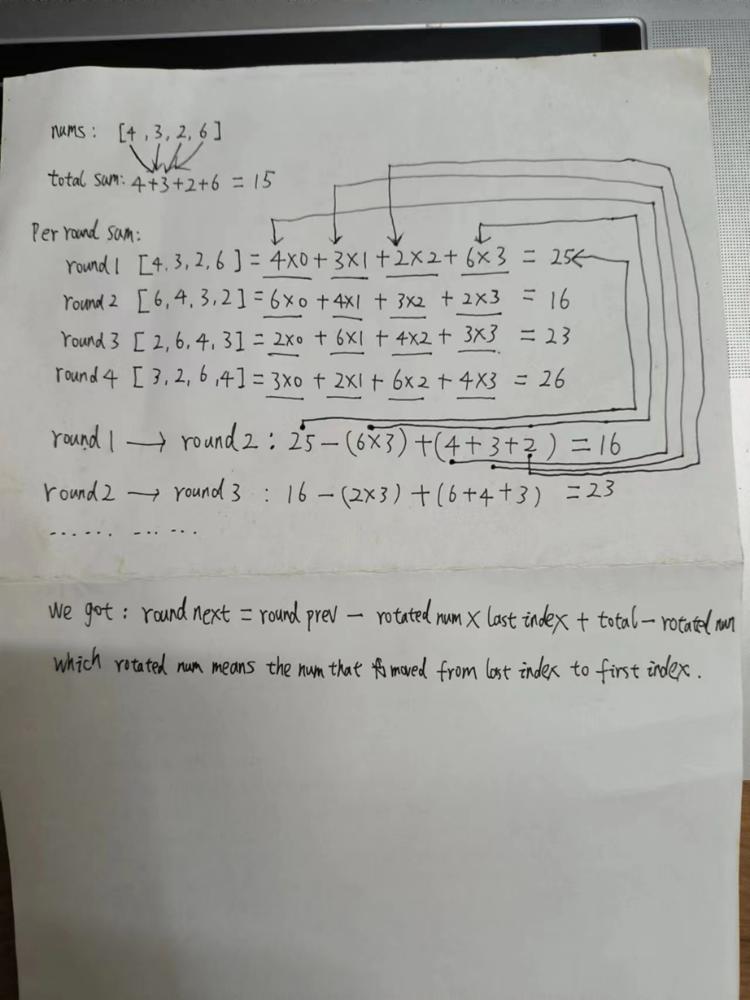 nums: [4,3,2,6]
total sum: 4+3+2+6 = 15
Per round sum:
round1 [4,3,2,6] = 4×0 + 3×1 + 2×2 + 6×3 = 25
round 2 [6,4,3,2] = 6×0 + 4×1 + 3×2 + 2×3 = 16
round 3 [2,6,4,3] = 2×0 + 6×1 + 4×2 + 3×3 = 23
round 4 [3,2,6,4] = 3×0 + 2×1 + 6×2 + 4×3 = 26
round 1 → round 2 : 25 − (6×3) + (4+3+2) = 16
round2 → round 3 : 16 − (2×3) + (6+4+3) = 23
...... ... ...
We got: round next = round prev − rotated num × last index + total − rotated num
which rotated num means the num that moved from last index to first index.